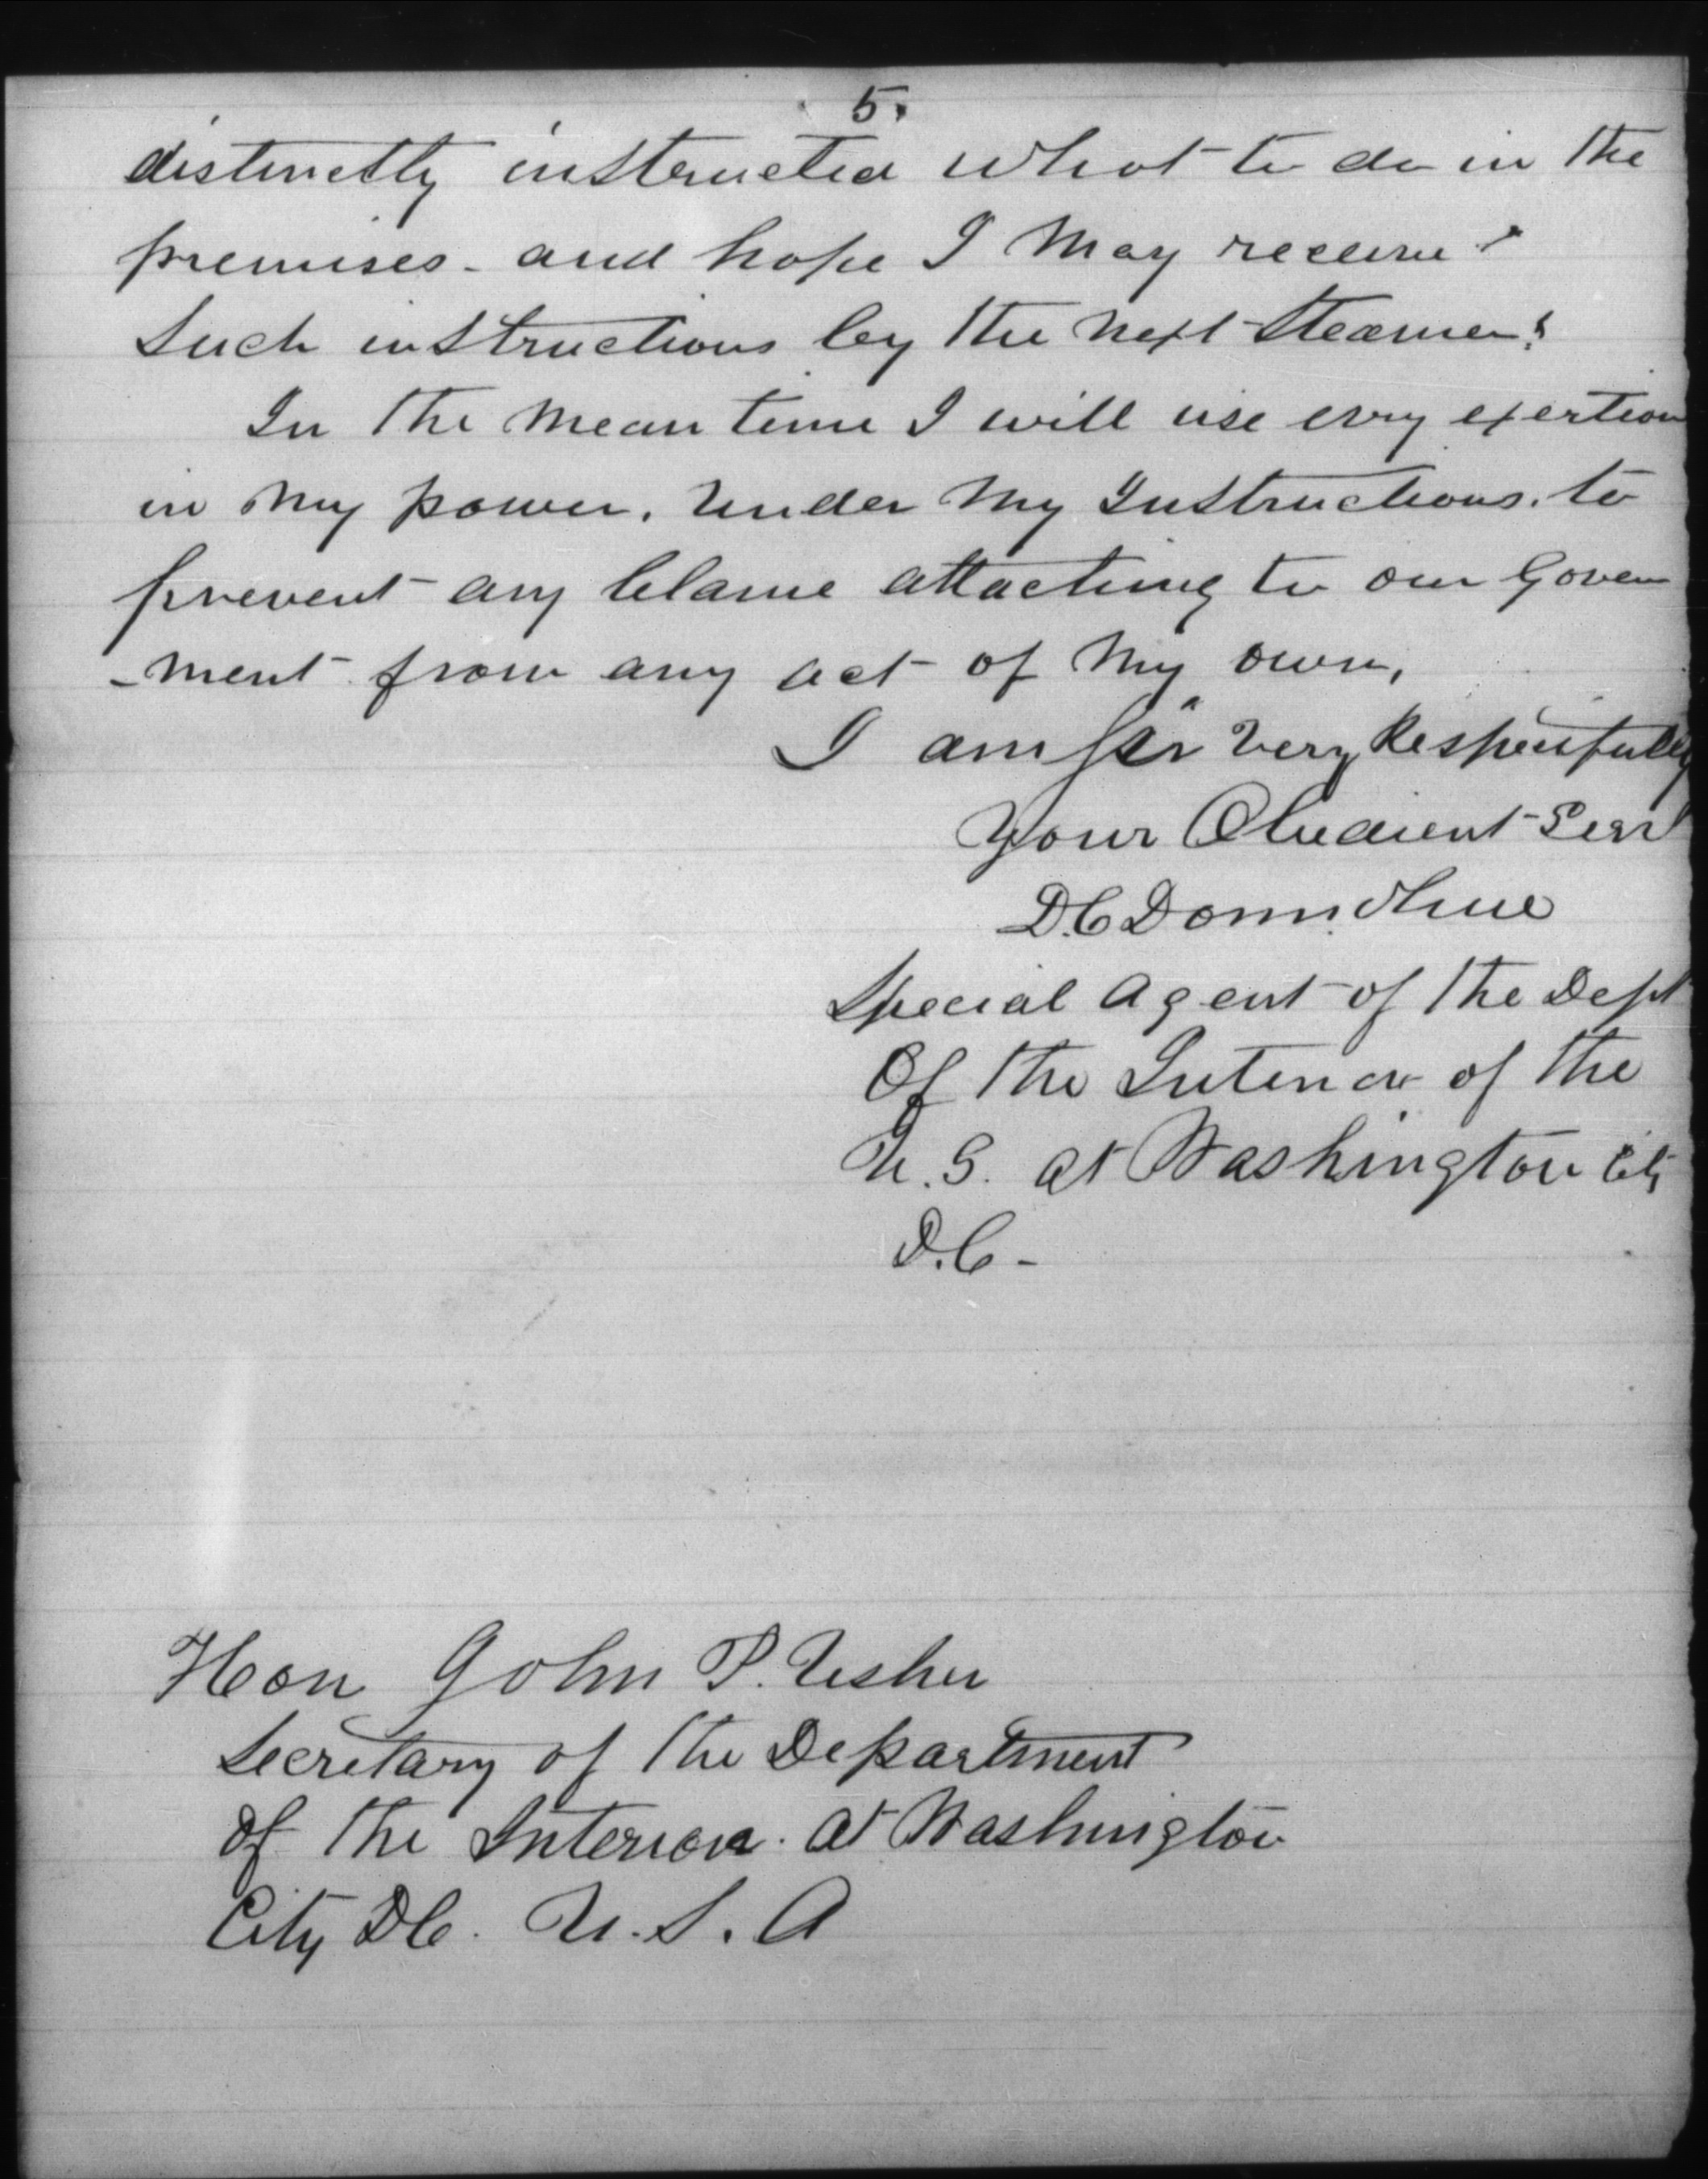 5.
distinctly instructed what to do in the
premises - and hope I may receive
such instructions by the next steamer.
In the mean time I will use evry exertion
in my power, under my Instructions, to
prevent any blame attaching to our Govern
-ment from any act of my own,
I am Sir Very Respectfully
Your Obedient Serv
D.C Donnohue
Special Agent of the Dept
Of the Interior of the
U.S. at Washington City
D.C -
Hon John P. Usher
Secretary of the Department
of the Interior. at Washington
City DC. U.S.A